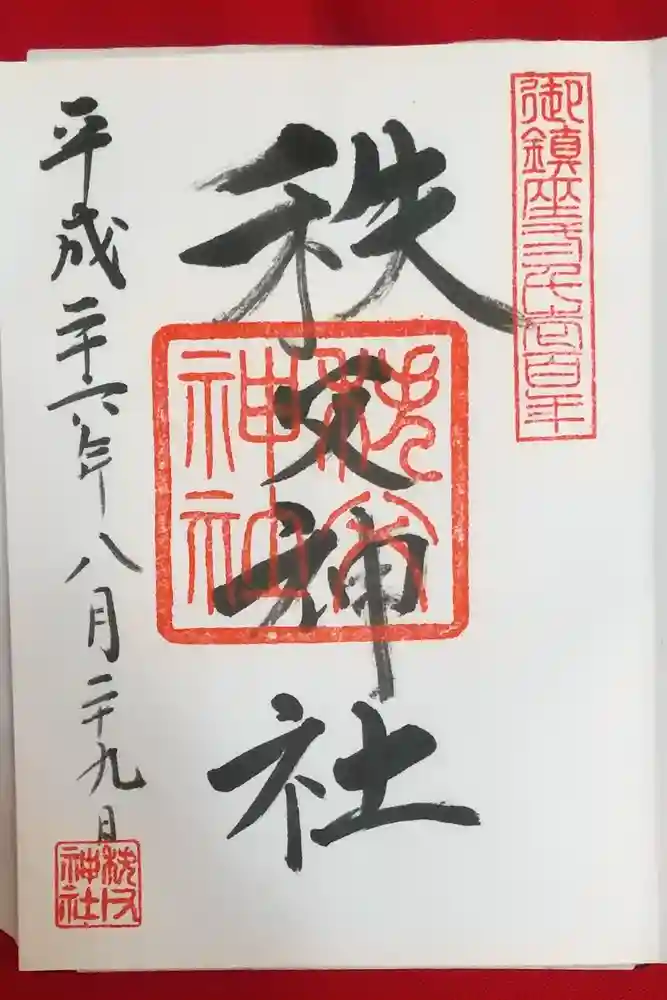 御鎮座弐阡壱百年
秩父神社
秩父
神社
平成二十六年八月二十九日
秩父
神社